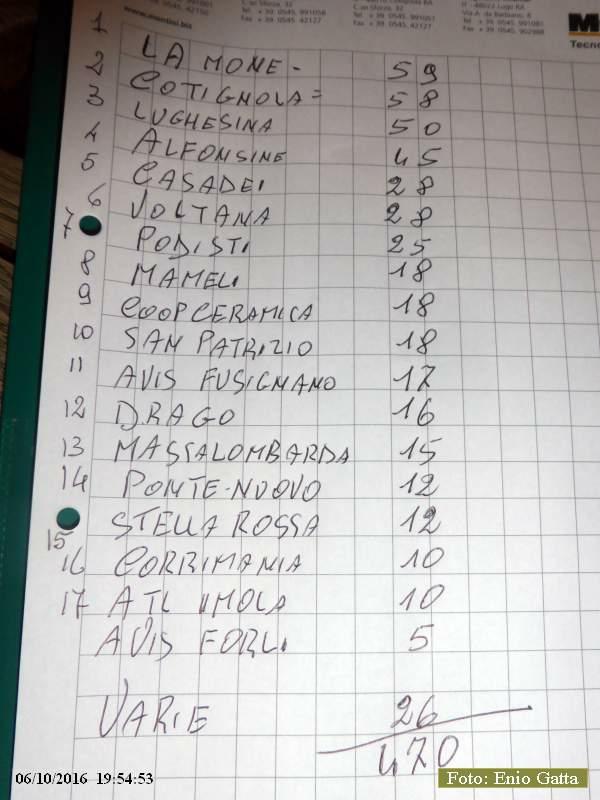 www.mantini.biz
1 LA MONE - 59
2 COTIGNOLA = 58
3 LUGHESINA 50
4 ALFONSINE 45
5 CASADEI 28
6 VOLTANA 28
7 PODISTI 25
8 MAMELI 18
9 COOPCERAMICA 18
10 SAN PATRIZIO 18
11 AVIS FUSIGNANO 17
12 DRAGO 16
13 MASSALOMBARDA 15
14 PONTE-NUOVO 12
15 STELLA ROSSA 12
16 CORRIMANIA 10
17 ATL IMOLA 10
AVIS FORLI 5
VARIE 26
470
06/10/2016 19:54:53
Foto: Enio Gatta